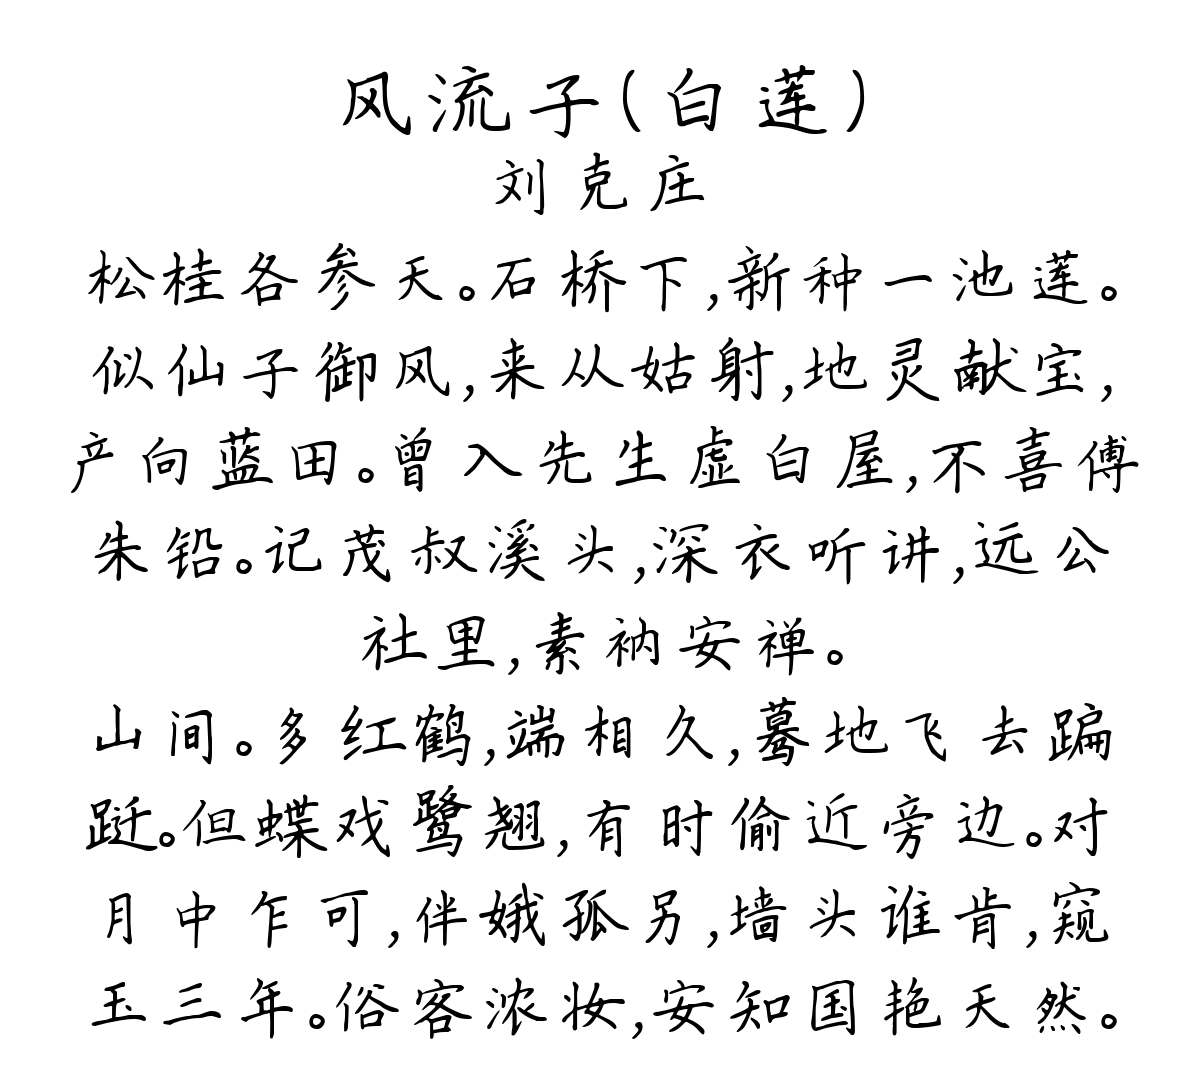 风流子(白莲)
刘克庄
松桂各参天。石桥下,新种一池莲。
似仙子御风,来从姑射,地灵献宝,
产向蓝田。曾入先生虚白屋,不喜傅
朱铅。记茂叔溪头,深衣听讲,远公
社里,素衲安禅。
山间。多红鹤,端相久,蓦地飞去蹁
跹。但蝶戏鹭翘,有时偷近旁边。对
月中乍可,伴娥孤另,墙头谁肯,窥
玉三年。俗客浓妆,安知国艳天然。